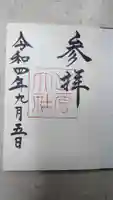 参拝
令和四年九月五日